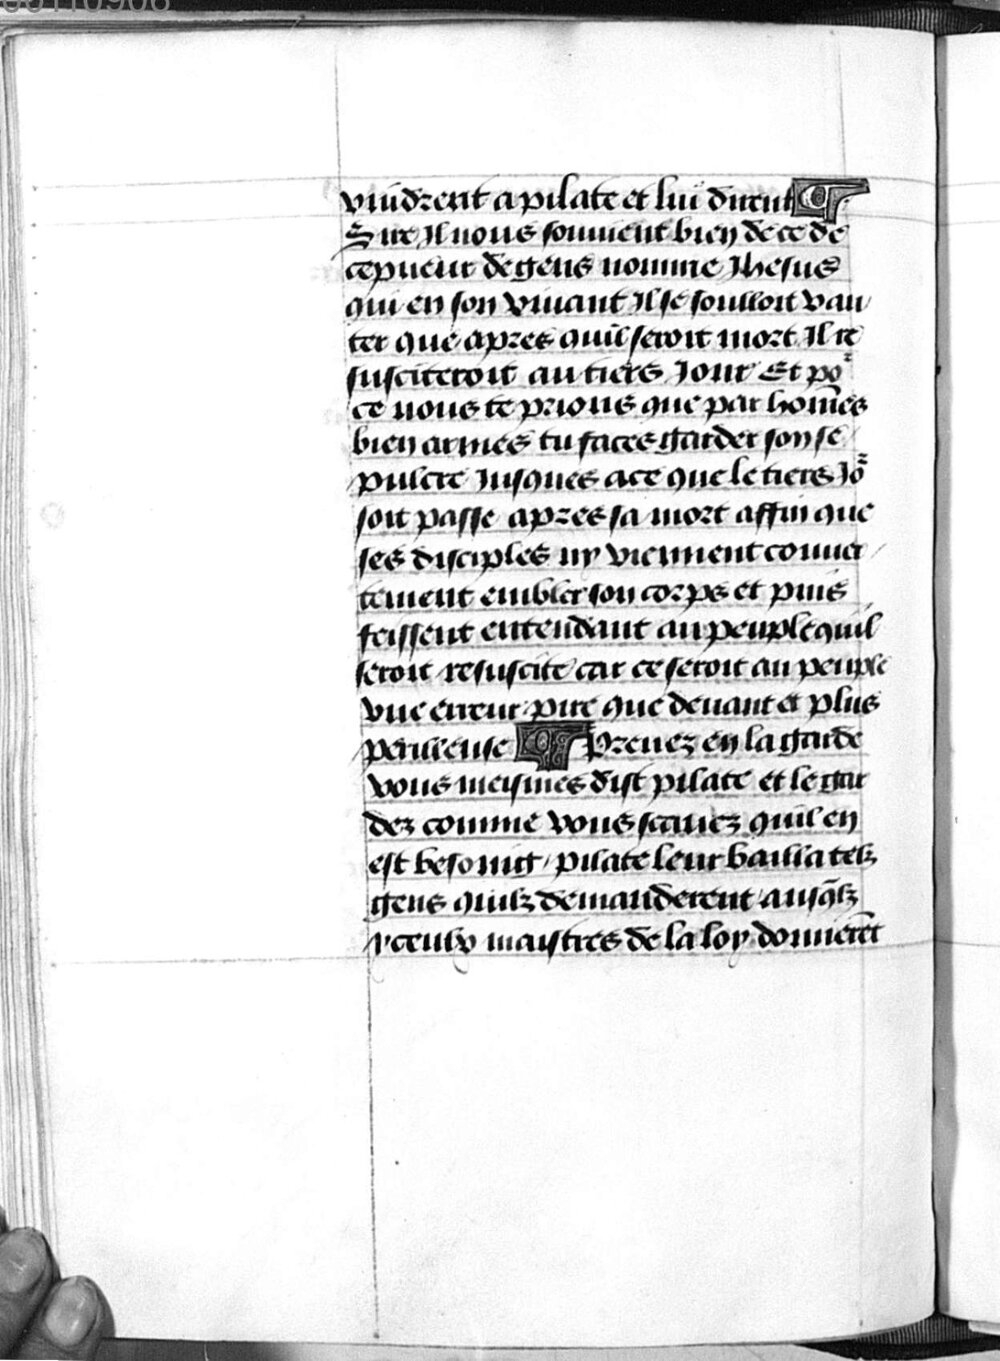 vindrent a pilate et lui dirent ¶
Sire Il nous souuient bien de ce de
cepueur de gens nomme Jhesus
qui en son viuant Il se soulloit van
ter que apres quil seroit mort Il re
susciteroit au tiers Jour Et po᷑
ce nous te prions que par hom̅es
bien armes tu faces garder son se
pulcre Jusques a ce que le tiers Jo᷑
soit passe apres sa mort affin que
ses disciples ny viennent couuer
tement embler son corps et puis
feissent entendant au peuple quil
seroit resuscite car ce seroit au peuple
vne erreur pire que deuant et plus
perilleuse ¶ Prenez en la garde
vous meismes dist pilate et le gar
dez comme vous scauez quil en
est besoing / pilate leur bailla telz
gens quilz demanderent ausq̅lz
yceulx maistres de la loy donnere̅t